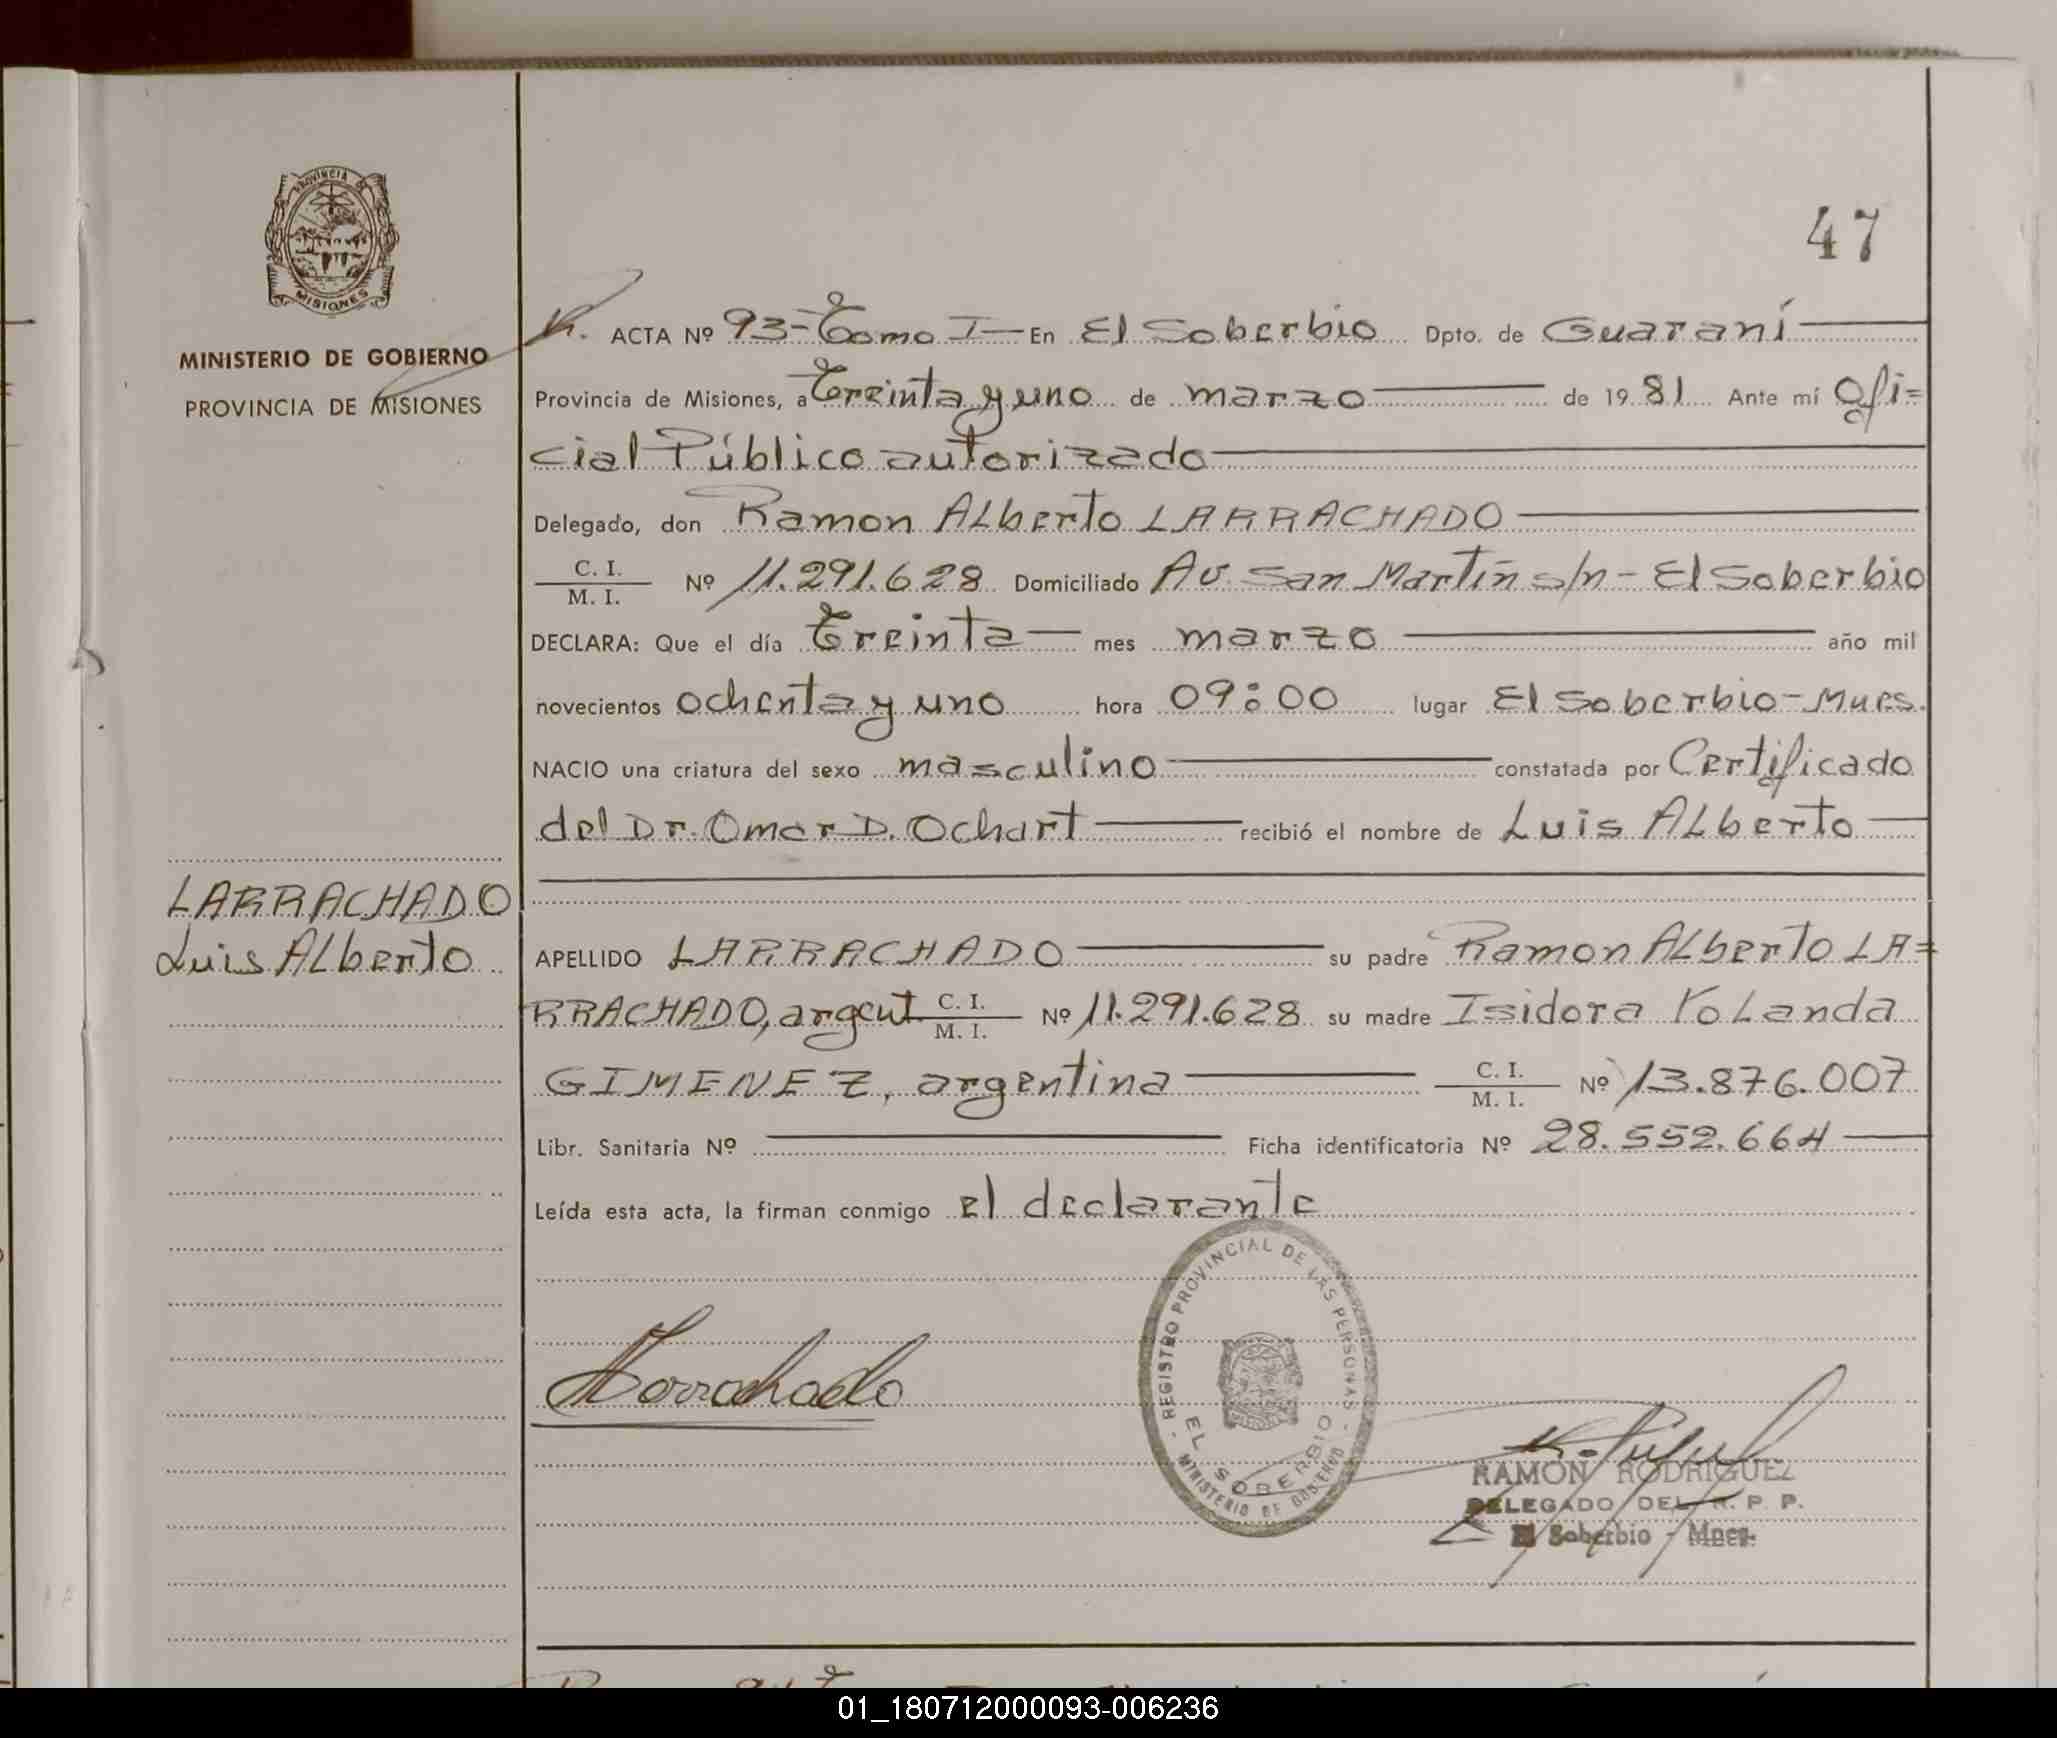 47
PROVINCIA DE
MISIONES
MINISTERIO DE GOBIERNO
PROVINCIA DE MISIONES
LARRACHADO
Luis ALberto
R. ACTA Nº 93-Tomo I- En El Soberbio Dpto. de Guaraní
Provincia de Misiones, a Treinta y uno de marzo de 1981 Ante mí Ofi=
cial Público autorizado
Delegado, don Ramon ALberto LARRACHADO
C. I. / M. I. Nº 11.291.628 Domiciliado Av. San Martín s/n - El Soberbio
DECLARA: Que el día Treinta mes marzo año mil
novecientos ochenta y uno hora 09:00 lugar El Soberbio-Mnes.
NACIO una criatura del sexo masculino constatada por Certificado
del Dr. Omar D. Ochart recibió el nombre de Luis ALberto
APELLIDO LARRACHADO su padre Ramon ALberto LA=
RRACHADO, argent. C. I. / M. I. Nº 11.291.628 su madre Isidora YoLanda
GIMENEZ, argentina C. I. / M. I. Nº 13.876.007
Libr. Sanitaria Nº Ficha identificatoria Nº 28.552.664
Leída esta acta, la firman conmigo el declarante
REGISTRO PROVINCIAL DE LAS PERSONAS - MINISTERIO DE GOBIERNO -
EL SOBERBIO
Larrachado
RAMON RODRIGUEZ
DELEGADO DEL R. P. P.
El Soberbio - Mnes.
01_180712000093-006236